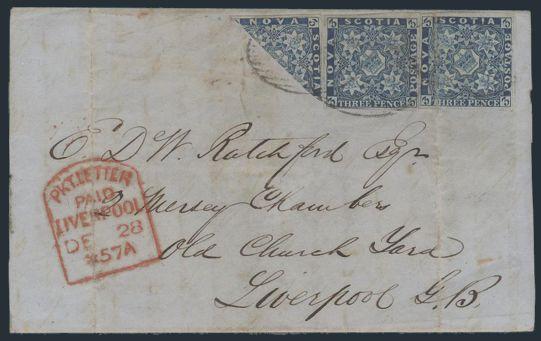 NOVA SCOTIA
NOVA SCOTIA POSTAGE THREE PENCE
NOVA SCOTIA POSTAGE THREE PENCE
E D W. Ratchford Esqr
2 Mersey Chambers
Old Church Yard
Liverpool G.B.
PKT. LETTER
PAID
LIVERPOOL
DE 28
57A